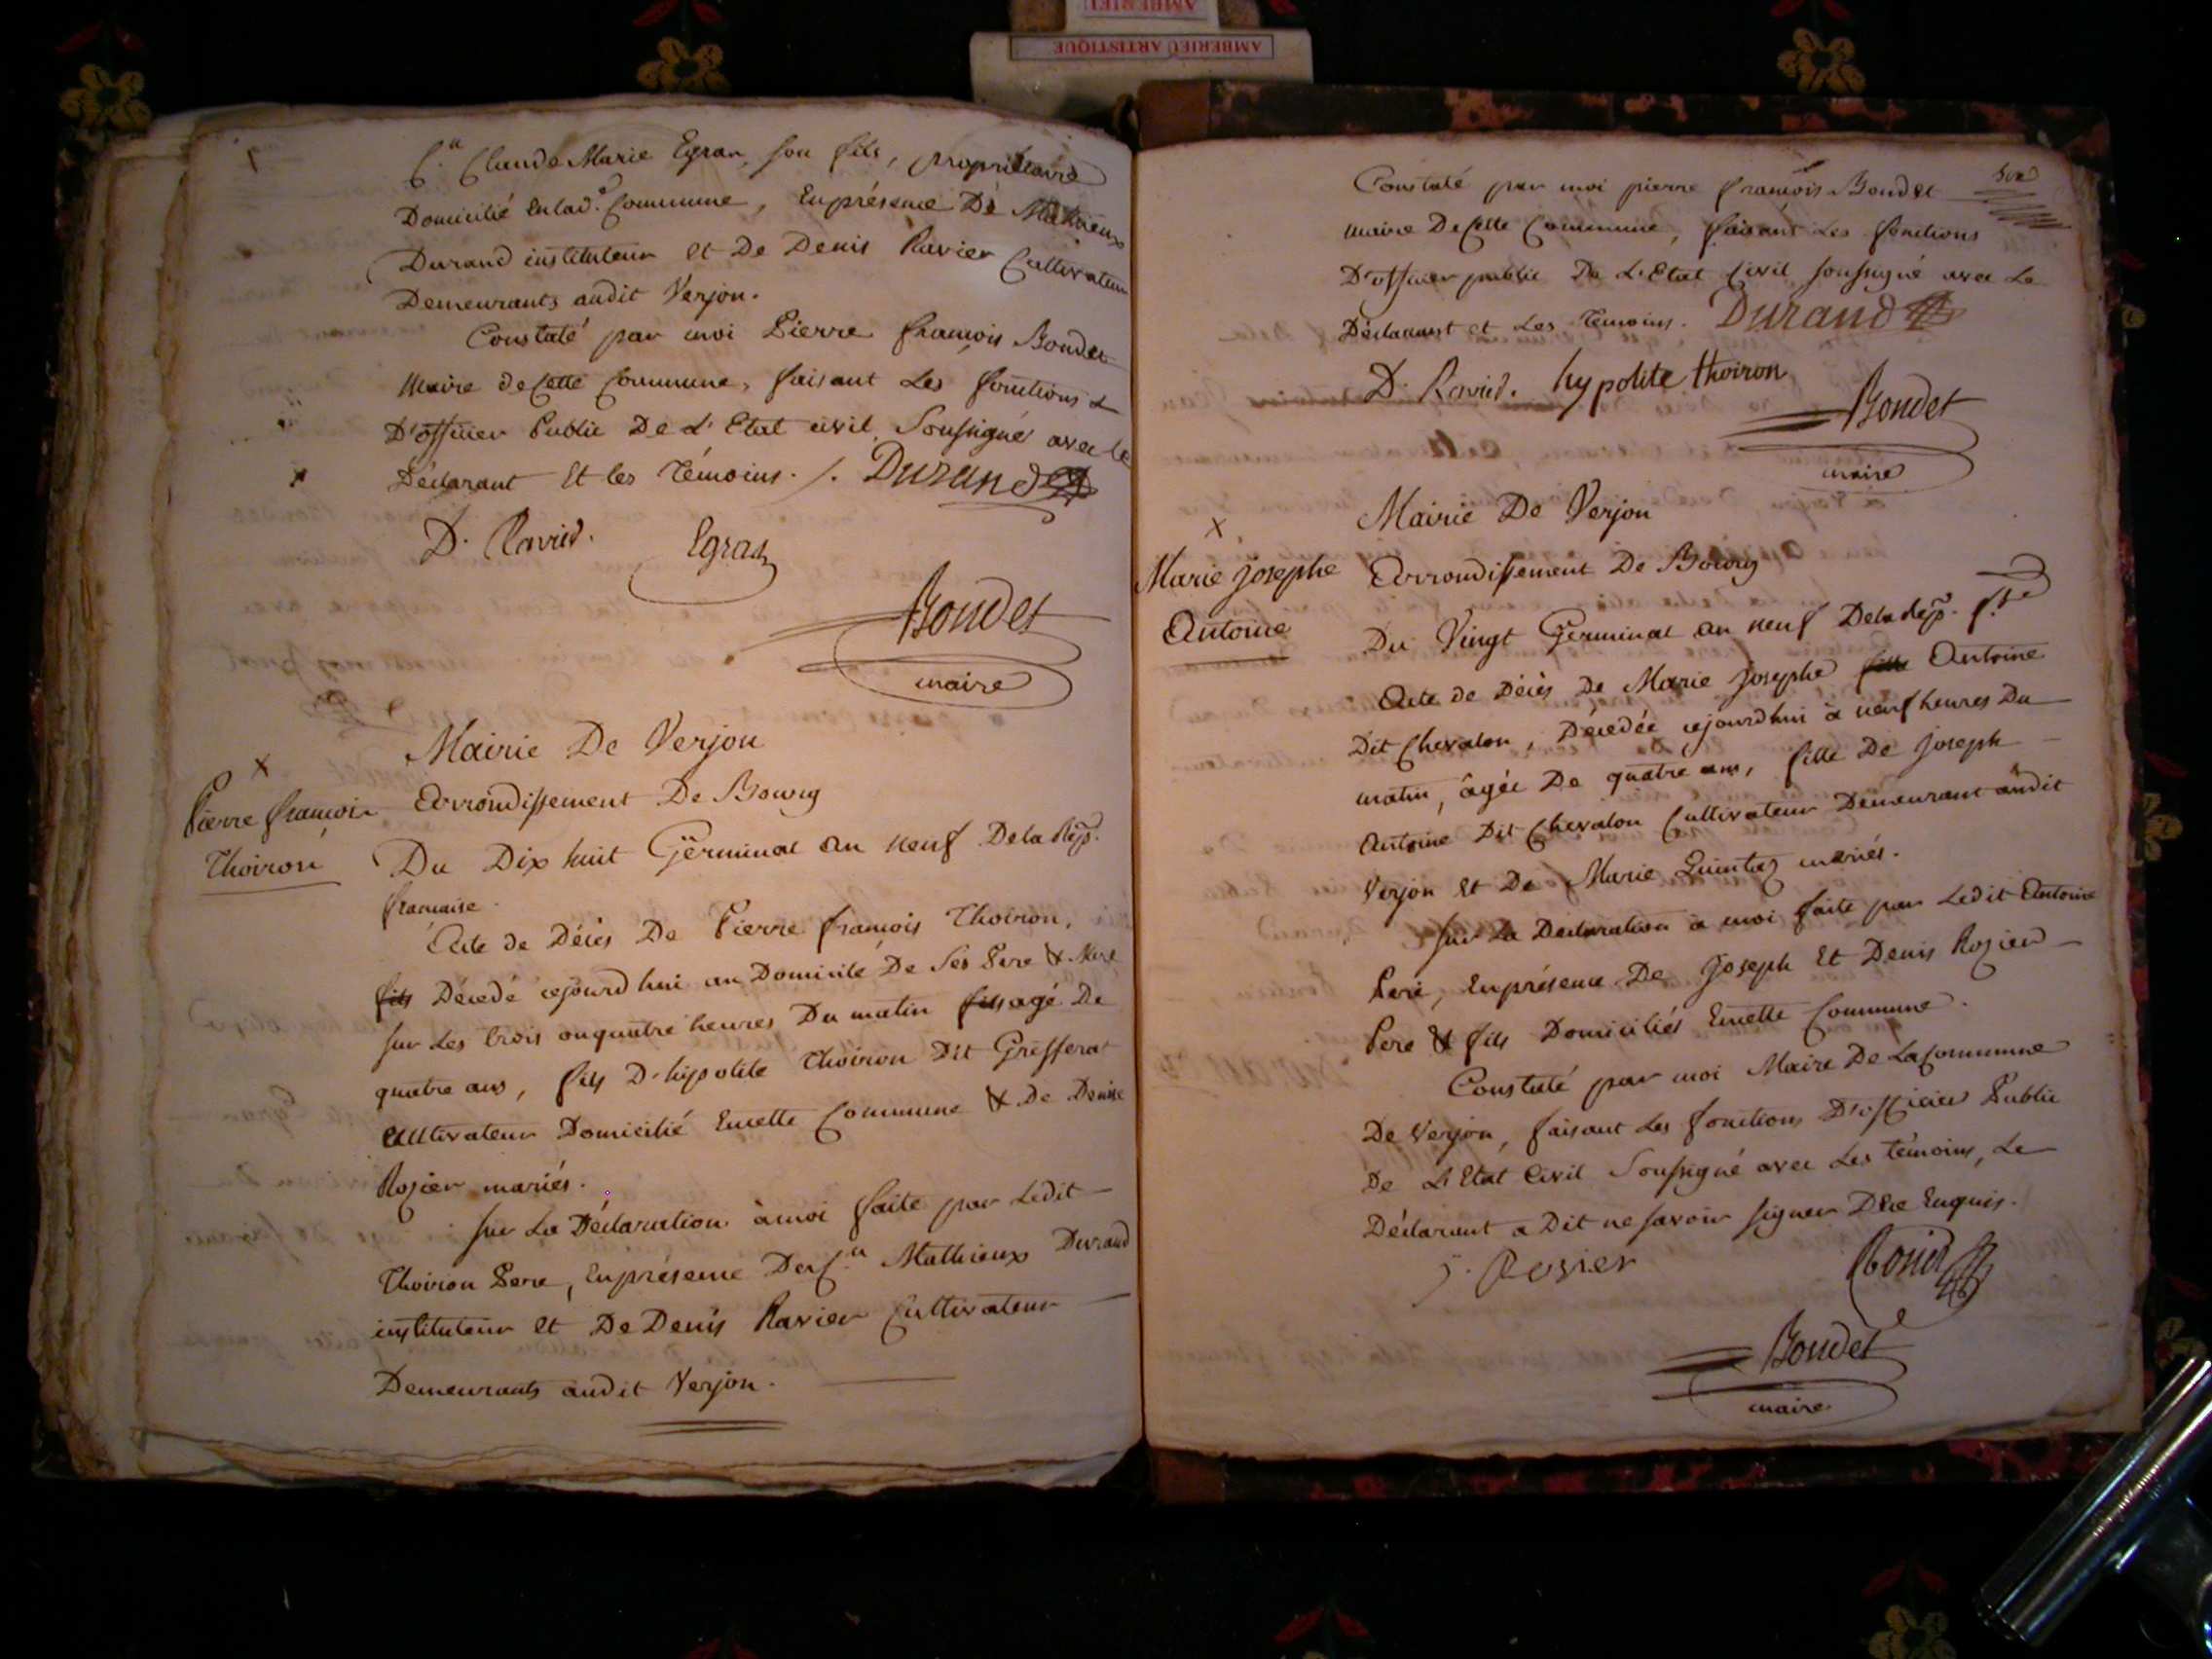 AMBERIEU
AMBERIEU ARTISTIQUE
C.en Claude Marie Egran, son fils, propriétaire
Domicilié en lad.e Commune, En présence De Mathieux
Durand instituteur et De Denis Ravier Cultivateur
Demeurants audit Verjon.
Constaté par moi Pierre françois Bondet
Maire de Cette Commune, faisant Les fonctions
D'officier Public De L'Etat civil, Soussigné avec le
Déclarant Et les Témoins. /. Durand
D. Ravier. Egran
Bondet
maire
X
Pierre françois
Thoiron
Mairie De Verjon
Arrondissement De Bourg
Du Dix huit Germinal an neuf De la Rép.
francaise.
Acte de Décès De Pierre françois Thoiron,
fils Décedé cejourd'hui au Domicile De Ses Pere & Mere
sur Les trois ou quatre heures Du matin fils agé De
quatre ans, fils D'hipolite Thoiron Dit Grifferat
Cultivateur Domicilié Encette Commune & De Denise
Rozier mariés.
sur La Déclaration à moi faite par Ledit
Thoiron Pere, En présence Du C.en Mathieux Durand
instituteur et De Denis Ravier Cultivateur
Demeurants audit Verjon.
Constaté par moi pierre françois Bondet
maire De Cette Commune, faisant Les fonctions
D'officier public De L'Etat Civil soussigné avec Le
Déclarant et Les Témoins. Durand
D. Ravier. hypolite thoiron
Bondet
maire
X
Marie Josephe
Antoine
Mairie De Verjon
Arrondissement De Bourg
Du Vingt Germinal an neuf De la Rép. f.se
Acte de Décès De Marie Josephe fille Antoine
Dit Chevalon, Décedée cejourd'hui à neuf heures Du
matin, âgée De quatre ans, fille De Joseph
Antoine Dit Chevalon Cultivateur Demeurant audit
Verjon et De Marie Quintaz mariés.
sur La Déclaration à moi faite par Ledit Antoine
Pere, En présence De Joseph Et Denis Rozier
Pere & fils Domiciliés Encette Commune.
Constaté par moi Maire De La Commune
De Verjon, faisant Les fonctions D'officier Public
De L'Etat Civil Soussigné avec Les témoins, Le
Déclarant a Dit ne savoir signer De ce Enquis.
J. Rozier
Bondet
maire